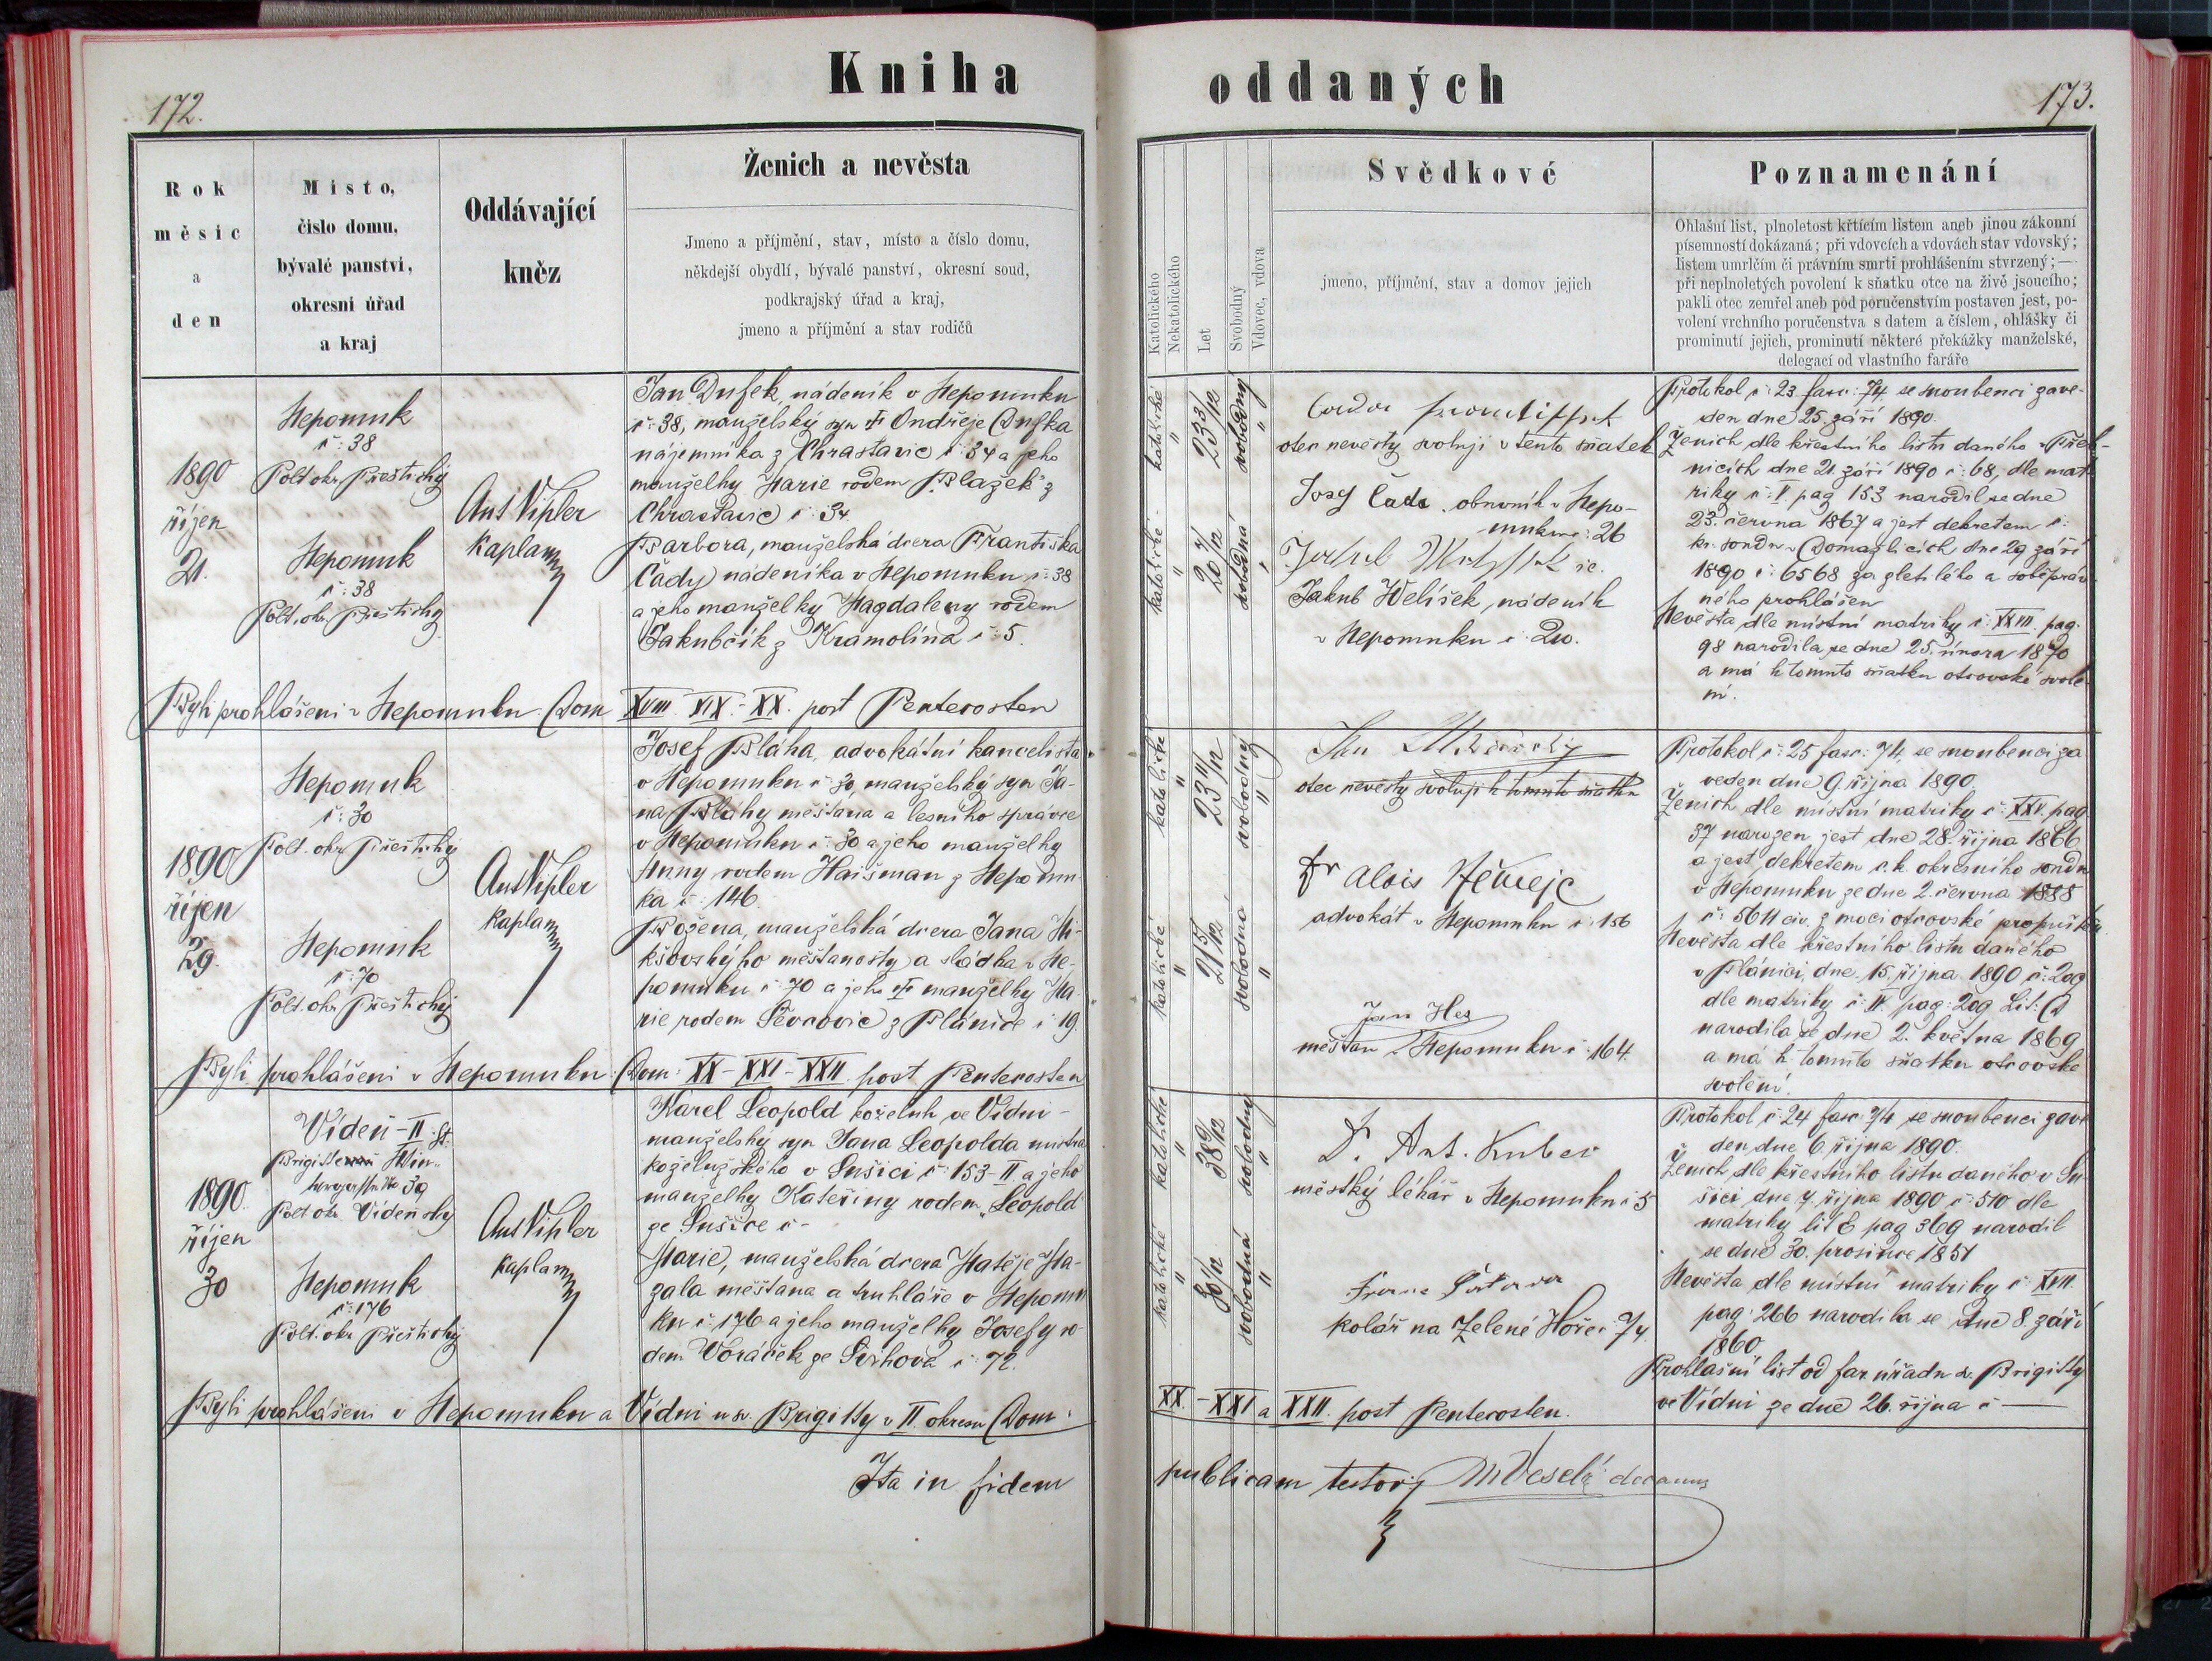 Kniha
oddaných
172.
173.
Rok
měsíc
a
den
Místo,
číslo domu,
bývalé panství,
okresní úřad
a kraj
Oddávající
kněz
Ženich a nevěsta
Jmeno a příjmění, stav, místo a číslo domu,
někdejší obydlí, bývalé panství, okresní soud,
podkrajský úřad a kraj,
jmeno a příjmění a stav rodičů
Katolického
Nekatolického
Let
Svobodný
Vdovec, vdova
Svědkové
jmeno, příjmění, stav a domov jejich
Poznamenání
Ohlašní list, plnoletost křtícím listem aneb jinou zákonní
písemností dokázaná; při vdovcích a vdovách stav vdovský;
listem umrlčím či právním smrti prohlášením stvrzený;—
při neplnoletých povolení k sňatku otce na živě jsoucího;
pakli otec zemřel aneb pod poručenstvím postaven jest, po-
volení vrchního poručenstva s datem a číslem, ohlášky či
prominutí jejich, prominutí některé překážky manželské,
delegací od vlastního faráře
1890
říjen
21.
Nepomuk
č: 38
Polt. okr. Přeštický
Nepomuk
č: 38
Polt. okr. Přeštický
Ant Vipler
kaplan
Jan Dufek, nádeník v Nepomuku
č: 38, manželský syn † Ondřeje Dufka
nájemníka z Chrastavic č: 34 a jeho
manželky Marie rodem Blažek z
Chrastavic č: 34.
Barbora, manželská dcera Františka
Čady nádeníka v Nepomuku č: 38
a jeho manželky Magdaleny rodem
Jakubčík z Kramolína č: 5.
katolické
"
23 3/12
svobodný
"
katolické
"
20 7/12
svobodná
"
otec nevěsty svoluji v tento sňatek
Josef Čada obuvník v Nepo-
muku č: 26
Jakub Welíšek, nádeník
v Nepomuku č: 20.
Protokol č: 23 fasc: 74 se snoubenci zave-
den dne 25. září 1890.
Ženich dle křestního listu daného v
nicích dne 21. září 1890 č: 68, dle mat-
riky č: V pag 153 narodil se dne
23. června 1867 a jest dekretem c:
kr. soudu v Domažlicích dne 29 září
1890 č: 6568 za zletilého a soběpráv-
ného prohlášen
Nevěsta dle místní matriky č: XXVII. pag.
98 narodila se dne 25. února 1870
a má k tomuto sňatku otcovské svole-
ní.
Byli prohlášeni v Nepomuku Dom XVIII. XIX. - XX. post Pentecosten
1890
říjen
29.
Nepomuk
č: 30
Polt. okr. Přeštický
Nepomuk
č: 70
Polt. okr. Přeštický
Ant Vipler
kaplan
Josef Bláha, advokátní kancelista
v Nepomuku č: 30, manželský syn Ja-
na Bláhy měštana a lesního správce
v Nepomuku č: 30 a jeho manželky
Anny rodem Haišman z Nepomu-
ka č: 146.
Božena, manželská dcera Jana Mi-
kšovského měštanosty a sládka v Ne-
pomuku č: 70 a jeho † manželky Ma-
rie rodem Ševcovic z Plánice č: 19.
katolické
"
23 11/12
svobodný
"
katolické
"
21 5/12
svobodná
"
otec nevěsty svoluji k tomuto sňatku
Dr Alois Němejc
advokát v Nepomuku č: 156
Jan Hes
měštan v Nepomuku č: 164.
Protokol č: 25 fasc: 74, se snoubenci za
veden dne 9. října 1890.
Ženich dle místní matriky č: XXV. pag.
37 narozen jest dne 28. října 1866
a jest dekretem c.k. okresního soudu
v Nepomuku ze dne 2. června 1888
č: 5611 civ. z moci otcovské propuštěn.
Nevěsta dle křestního listu daného
v Plánici dne 15. října 1890 č: 209
dle matriky č: IV. pag: 209 Lit: D
narodila se dne 2. května 1869
a má k tomuto sňatku otcovské
svolení.
Byli prohlášeni v Nepomuku: Dom: XX - XXI - XXII. post Pentecosten
1890.
říjen
30
Vídeň - II. St.
Polt okr. Vídeňský
Nepomuk
č: 176
Polt. okr. Přeštický
Ant Vipler
kaplan
Karel Leopold koželuh ve Vídni -
manželský syn Jana Leopolda mistra
koželužského v Sušici č: 153-II. a jeho
manželky Kateřiny rodem „Leopold"
ze Sušice č -
Marie, manželská dcera Matěje Ma-
zala měštana a truhláře v Nepomu-
ku č: 176 a jeho manželky Josefy ro-
dem Woráček ze Švihova č: 72.
katolické
"
38 9/12
svobodný
"
katolické
"
30 1/12
svobodná
"
D. Ant. Kubec
městský lékář v Nepomuku č: 5
kolář na Zelené Hoře č 74.
Protokol č: 24 fasc: 74 se snoubenci zave
den dne 6. října 1890.
Ženich dle křestního listu daného v Su-
šici dne 7. října 1890 č: 510 dle
matriky lit E pag 369 narodil
se dne 30. prosince 1851
Nevěsta dle místní matriky č: XVII.
pag: 266 narodila se dne 8. září
1860
Prohlašní list od far. úřadu sv. Brigitty
ve Vídni ze dne 26. října č —
Byli prohlášeni v Nepomuku a Vídni u sv. Brigitty v II. okresu Dom: XX. - XXI a XXII. post Pentecosten.
Ita in fidem publicam testor: MVeselý decanus